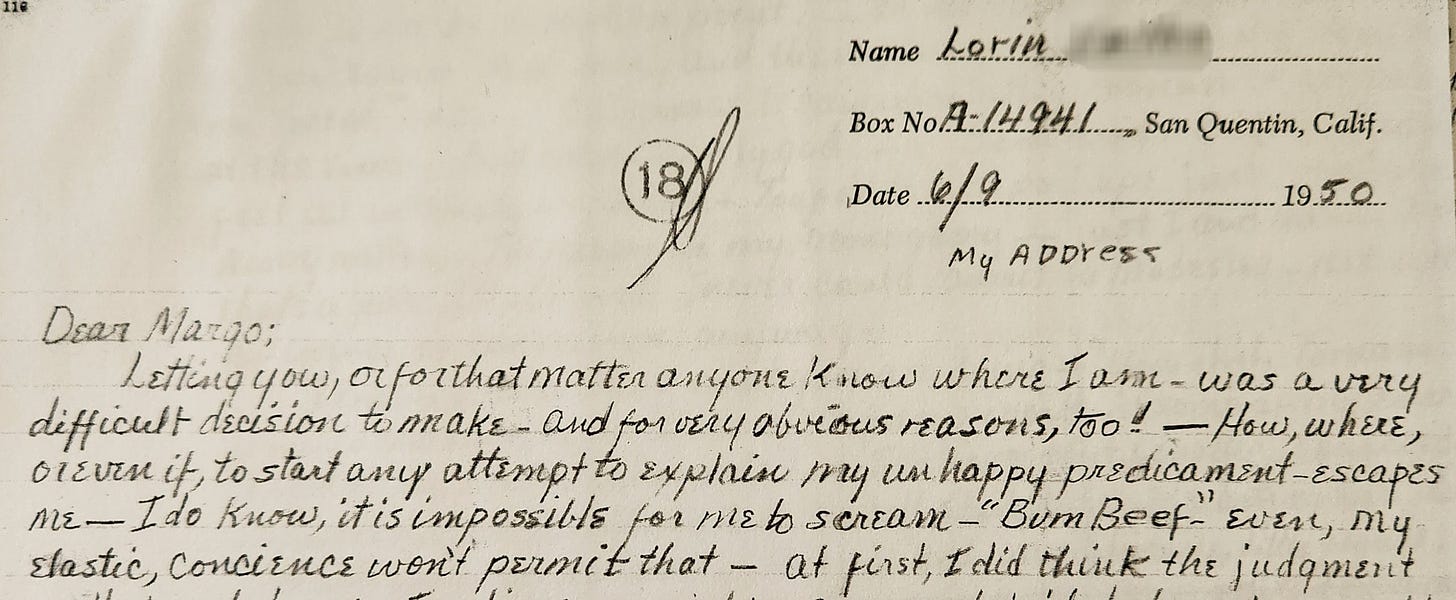 116
Name Lorin
Box No. A-14941, San Quentin, Calif.
18
Date 6/9 1950
My ADDress
Dear Margo;
Letting you, or for that matter anyone Know where I am - was a very
difficult decision to make - and for very obvious reasons, too! — How, where,
or even if, to start any attempt to explain my unhappy predicament - escapes
me — I do Know, it is impossible for me to scream - "Bum Beef-" even, my
elastic, concience won't permit that — at first, I did think the judgment